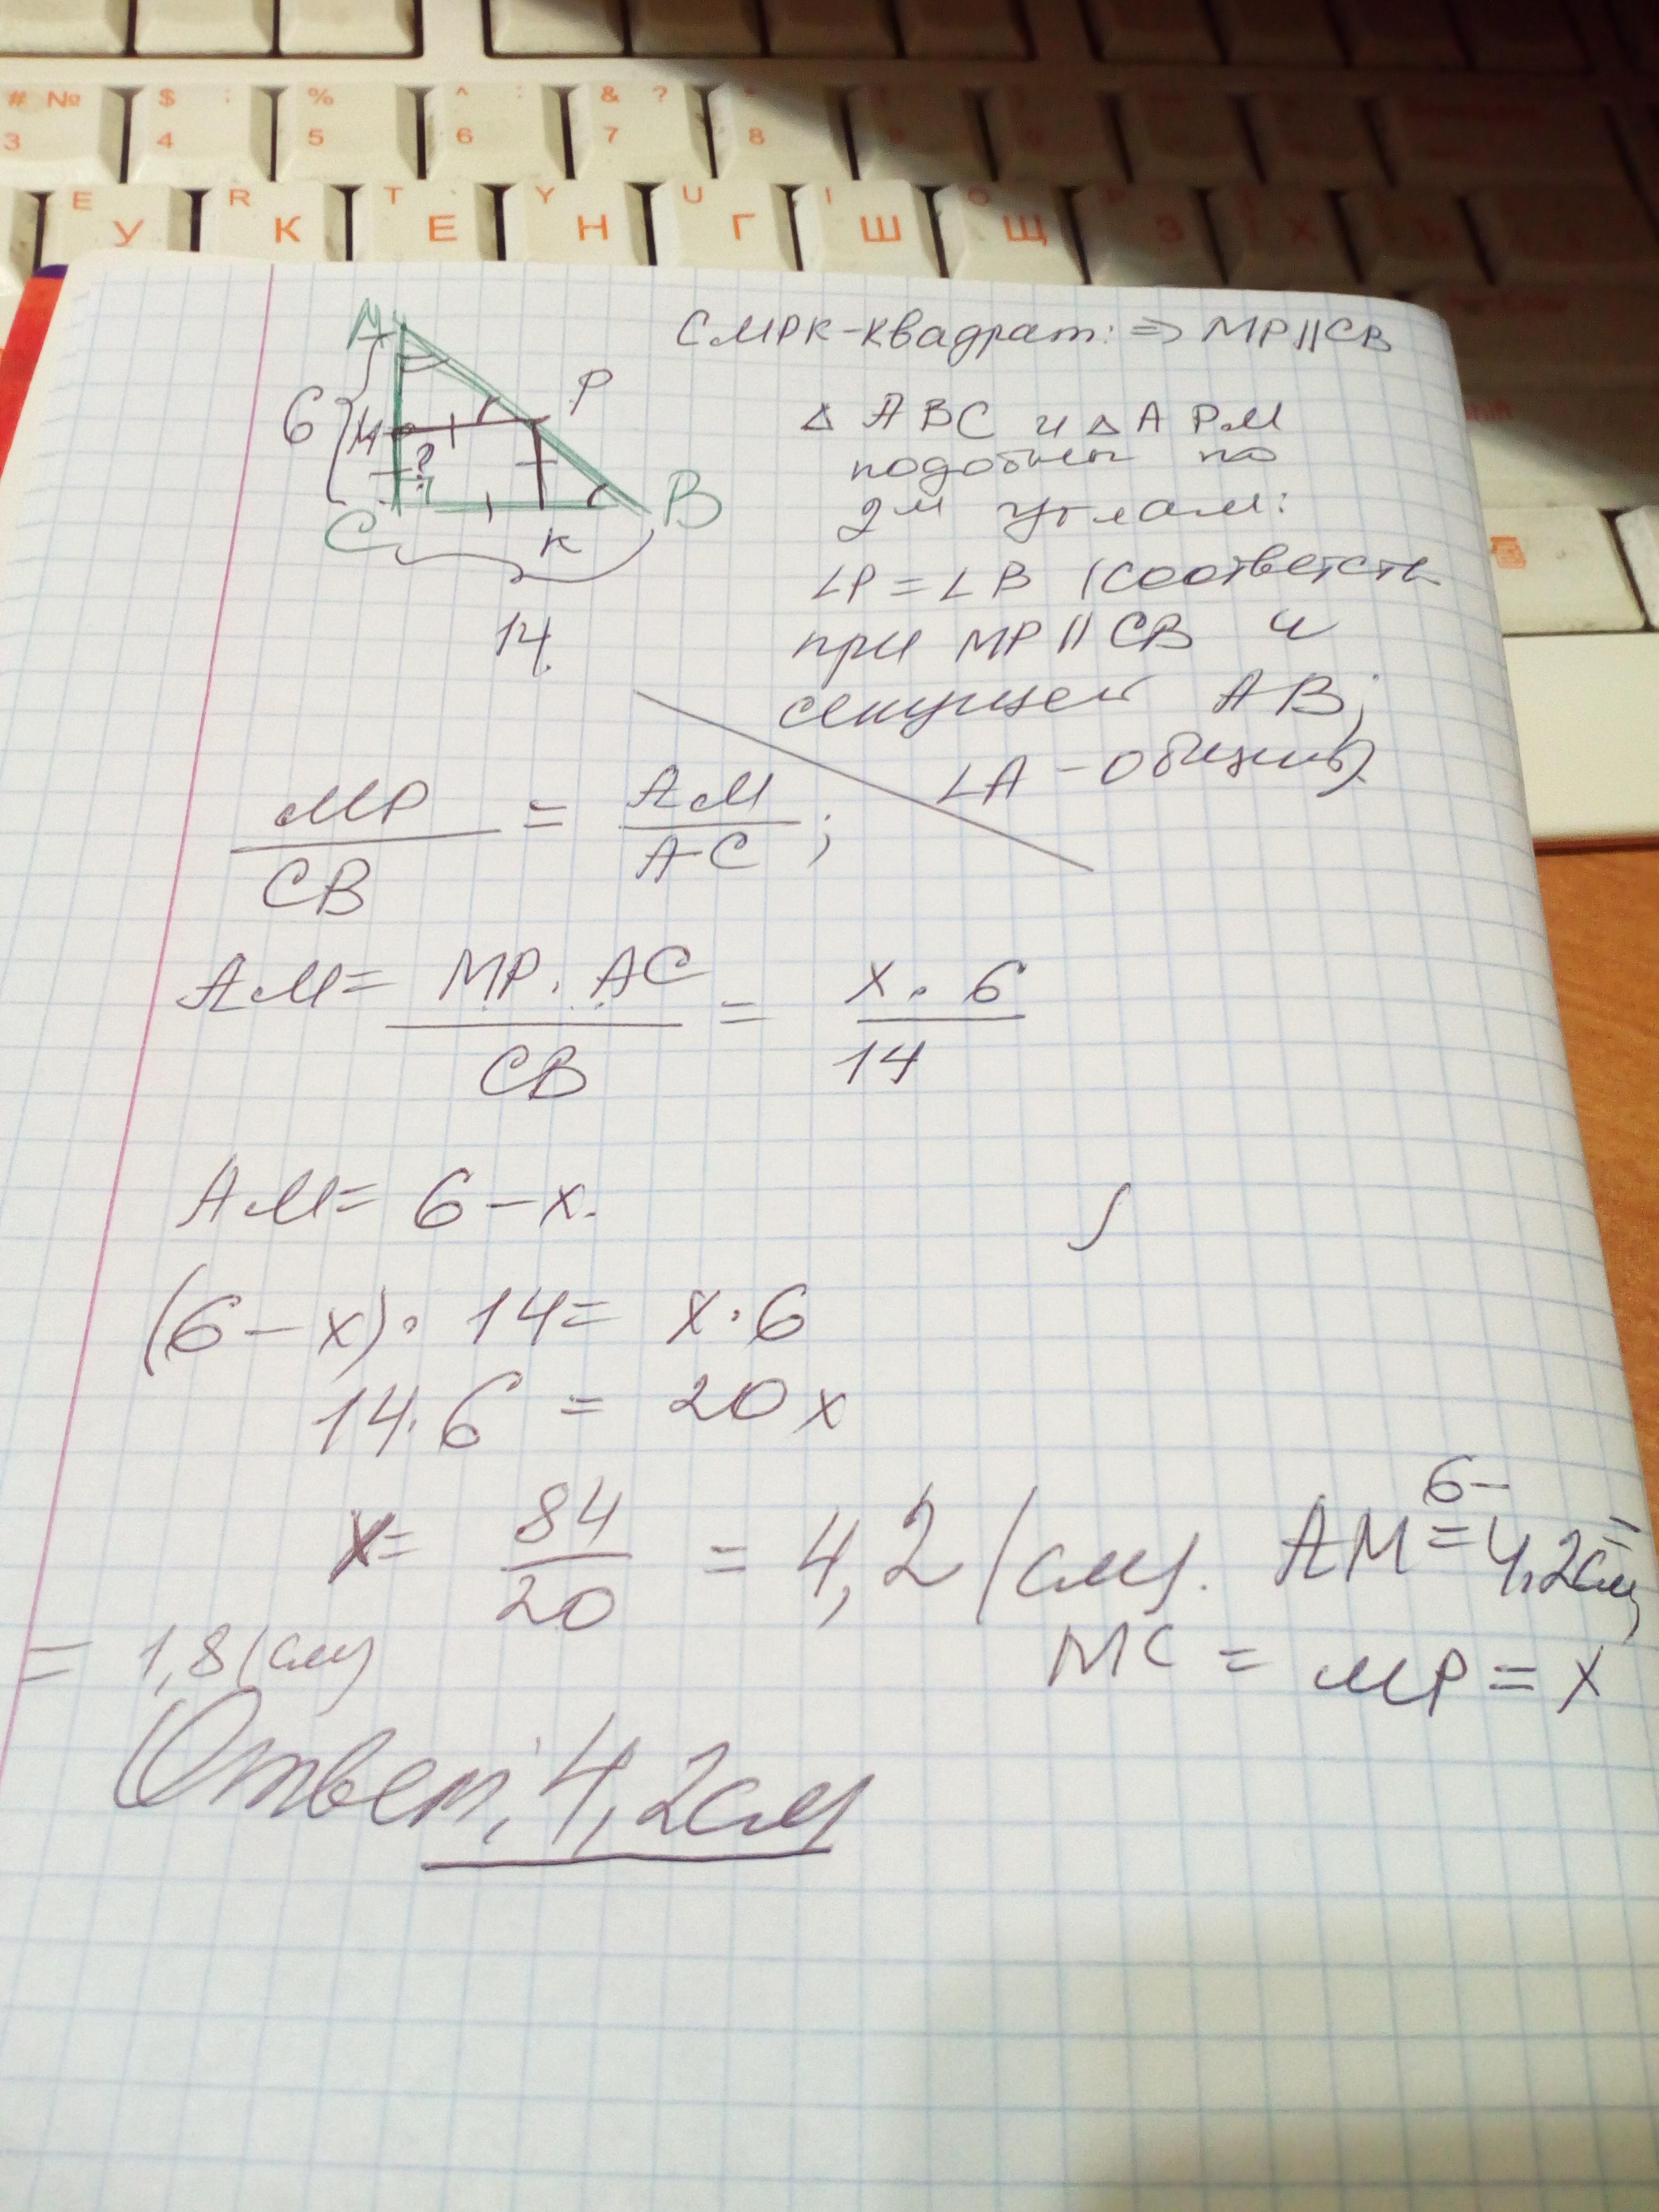 # № $ ; % ^ : & ? *
3 4 5 6 7 8
E R T Y U I O
У К Е Н Г Ш Щ З Х Ъ
СМРК-квадрат: => MP||CB
A
P
6
М
?
C
K
B
14
△ ABC и △ APM
подобны по
2м углам:
∠P = ∠B (соответств
при MP || CB и
секущей AB;
∠A - общий).
MP/CB = AM/AC;
AM = MP · AC/CB = x · 6/14
AM = 6 - x.
(6 - x) · 14 = x · 6
14 · 6 = 20x
x = 84/20 = 4,2 (см). AM = 6 - 4,2см =
= 1,8 (см)
MC = MP = x
Ответ: 4,2см